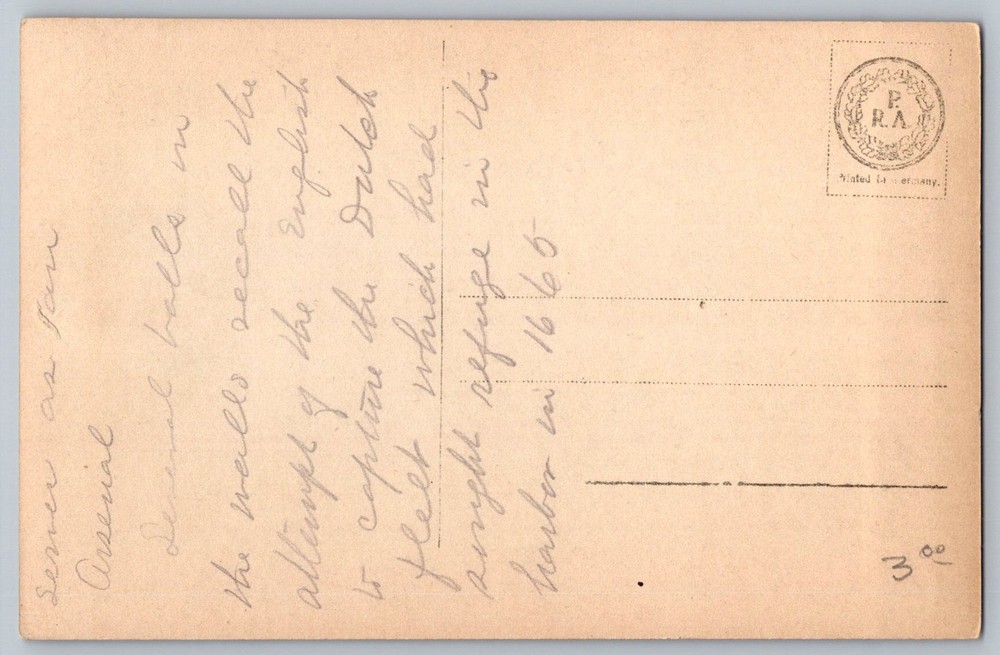 serves as an
Arsenial
Several balls in
the walls recall the
attempt of the English
to capture the Dutch
fleet which had
sought refuge in this
harbor in 1665
P.
R.A.
Printed in Germany.
3.00